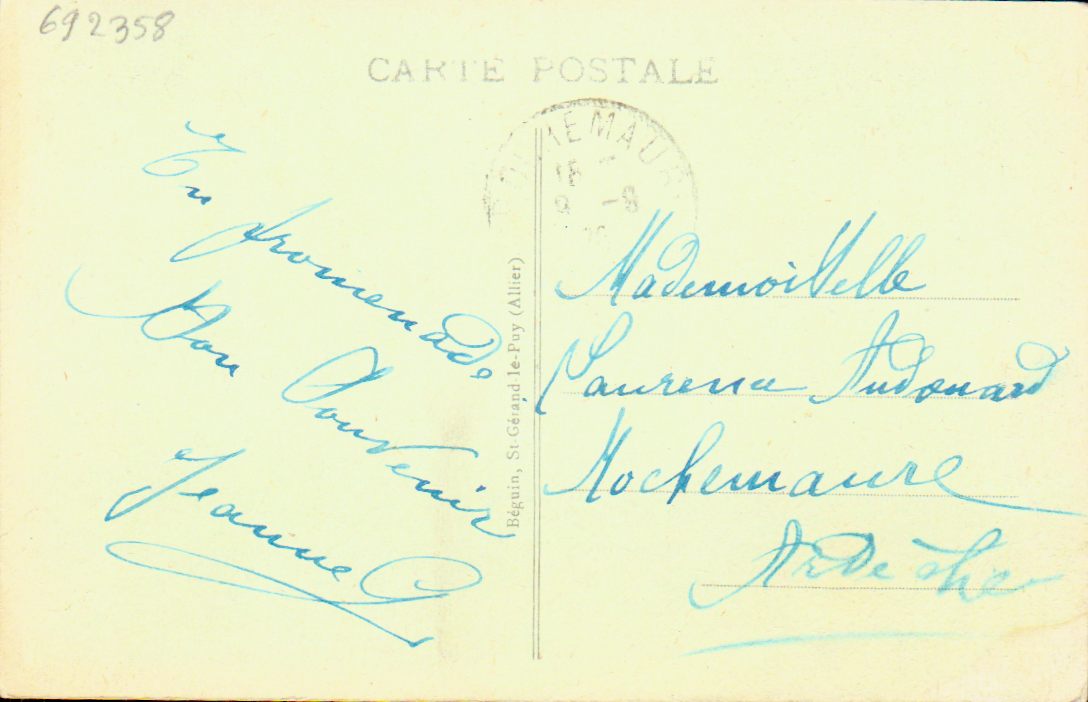 692358
CARTE POSTALE
En promenade
Bon Souvenir
Jeanne G
Béguin, St-Gérand-le-Puy (Allier)
15
-8
Mademoiselle
Laurence Audouard
Rochemaure
Ardèche